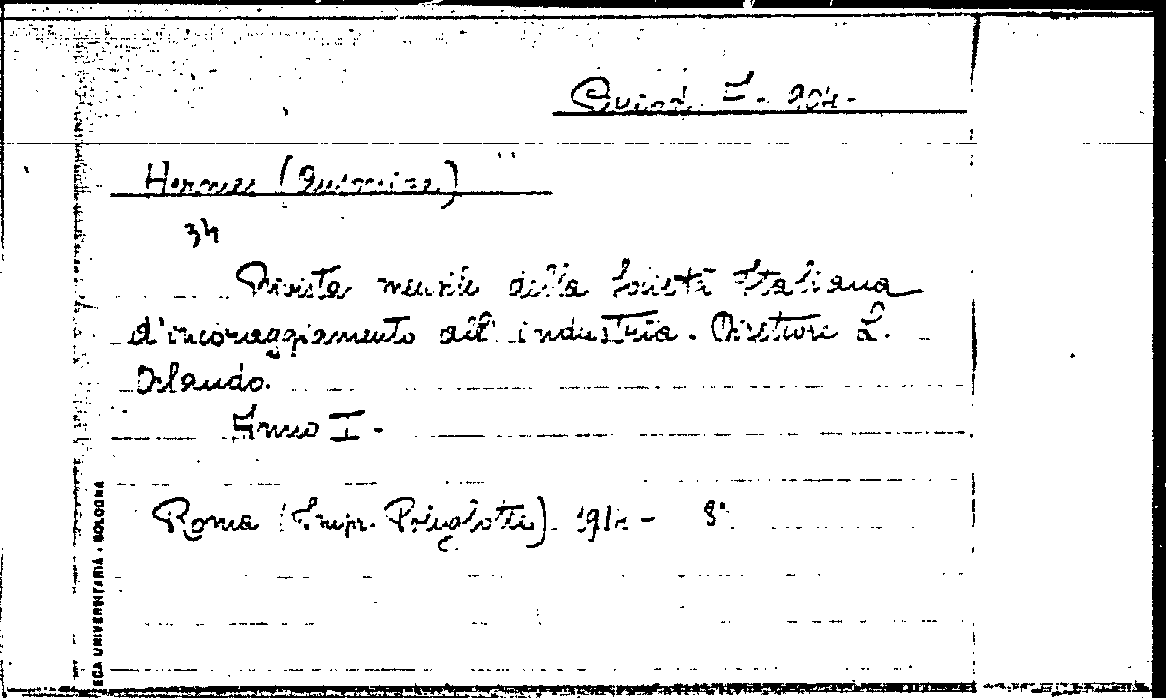 Hermes
34
Rivista mensile della Società Italiana
d'incoraggiamento all'industria. Direttore L.
Orlando.
Anno I -
Roma (Impr. Poliglotta) 191 - 8°
ECA UNIVERSITARIA - BOLOGNA